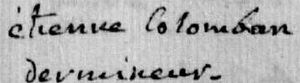 étienne Colomban
dermineur.